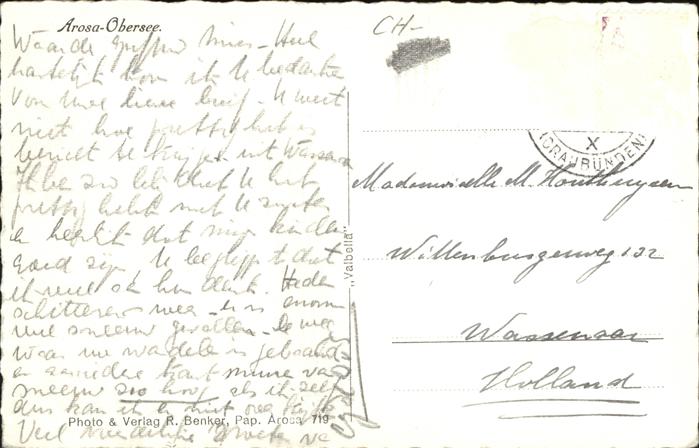 Arosa-Obersee.
CH-
Waarde Mies - Heel
hartelijk kom ik U bedanken
voor Uwe lieve brief - U weet
niet hoe prettig het is
bericht te krijgen uit Wassenaar
Ik ben zoo blij dat U het
prettig hebt met U zuster
en heerlijk dat mijn kinderen
goed zijn U begrijpt dat
ik veel ook hun denk. Heden
schitterend weer - er is enorm
veel sneeuw gevallen - De weg
waar we wandelen is gebaand
en aan iedere kant muren van
sneeuw zoo hoog als ik zelf
dus kan ik er niet over kijken
Veel vriendelijke groeten van
"Valbella"
Photo & Verlag R. Benker, Pap. Arosa 719
X
(GRAUBÜNDEN)
Mademoiselle M. Houthuysen
Wittenburgerweg 132
Wassenaar
Holland